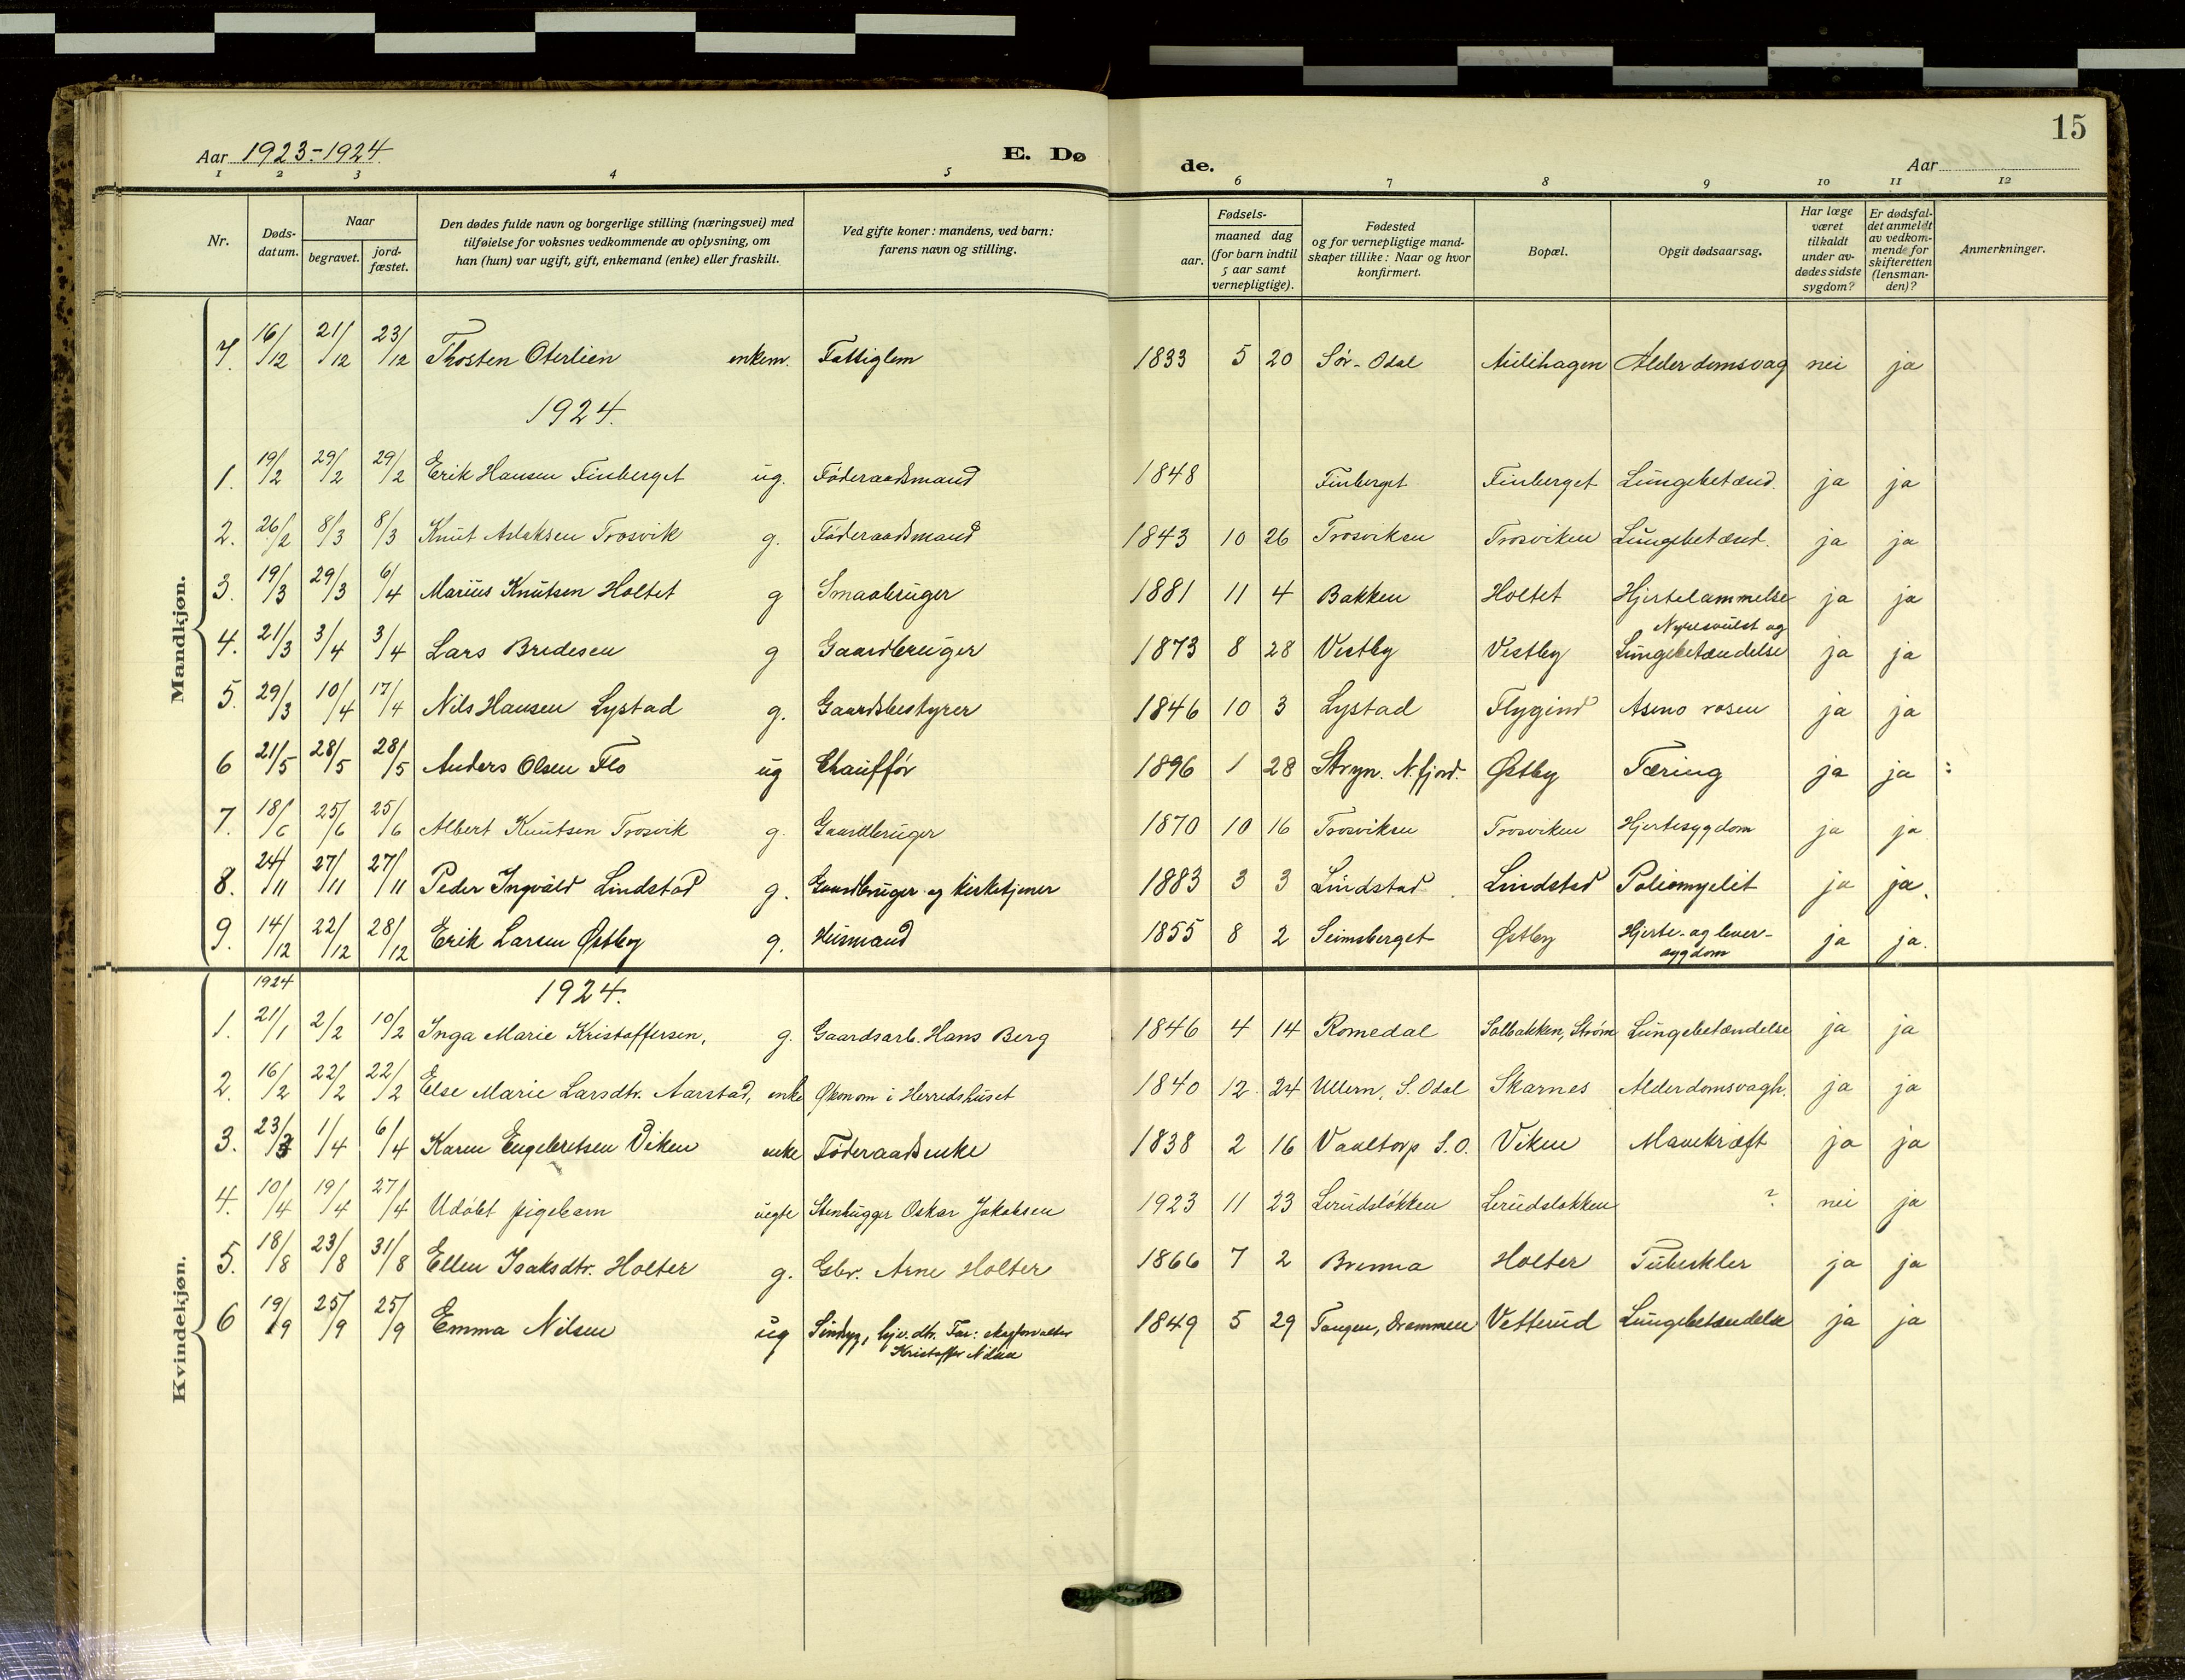 15
Aar 1923-1924.
E. Dø
de.
Aar
1 2 3 4 5 6 7 8 9 10 11 12
Nr.
Døds-datum.
Naar
begravet.
jord-fæstet.
Den dødes fulde navn og borgerlige stilling (næringsvei) med
tilføielse for voksnes vedkommende av oplysning, om
han (hun) var ugift, gift, enkemand (enke) eller fraskilt.
Ved gifte koner: mandens, ved barn:
farens navn og stilling.
Fødsels-
aar.
maaned dag
(for barn indtil
5 aar samt
vernepligtige).
Fødested
og for vernepligtige mand-
skaper tillike: Naar og hvor
konfirmert.
Bopæl.
Opgit dødsaarsag.
Har læge
været
tilkaldt
under av-
dødes sidste
sygdom?
Er dødsfal-
det anmeldt
av vedkom-
mende for
skifteretten
(lensman-
den)?
Anmerkninger.
Mandkjøn.
7. 16/12 21/12 23/12 Thosten Oterlien enkem. Fattiglem 1833 5 20 Sør-Odal Aulihagen Alderdomsvag nei ja
1924.
1. 19/2 29/2 29/2 Erik Hansen Finberget ug. Føderaadsmand 1848 Finberget Finberget Lungebetænd. ja ja
2. 26/2 8/3 8/3 Knut Aslaksen Trosvik g. Føderaadsmand 1843 10 26 Trosviken Trosviken Lungebetænd. ja ja
3. 19/3 29/3 6/4 Marius Knutsen Holtet g Smaabruger 1881 11 4 Bakken Holtet Hjertelammelse ja ja
Nyresvulst og
4. 21/3 3/4 3/4 Lars Bredesen g Gaardbruger 1873 8 28 Vestby Vestby Lungebetændelse ja ja
5. 29/3 10/4 17/4 Nils Hansen Lystad g. Gaardsbestyrer 1846 10 3 Lystad Flygind rosen ja ja
6 21/5 28/5 28/5 Anders Olsen Flo ug Chauffør 1896 1 28 Stryn. N.fjord. Østby Tæring ja ja :
7. 18/6 25/6 25/6 Albert Knutsen Trosvik g. Gaardbruger 1870 10 16 Trosviken Trosviken Hjertesygdom ja ja
8. 24/11 27/11 27/11 Peder Ingvald Lindstad g. Gaardbruger og kirketjener 1883 3 3 Lindstad Lindstad Poliomyelit ja ja.
9. 14/12 22/12 28/12 Erik Larsen Østby g. Husmand 1855 8 2 Seimsberget Østby Hjerte- og lever-
sygdom ja ja.
Kvindekjøn.
1924 1924.
1. 21/1 2/2 10/2 Inga Marie Kristoffersen, g. Gaardsarb. Hans Berg 1846 4 14 Romedal Solbakken, Strøm Lungebetændelse ja ja
2. 16/2 22/2 22/2 Else Marie Larsdtr. Aarstad, enke Økonom i Herredshuset 1840 12 24 Ullern, S. Odal Skarnes Alderdomsvagh. ja ja
3. 23/3 1/4 6/4 Karen Engebretsen Viken enke Føderaadsenke 1838 2 16 Vaaltorp S.O. Viken Mavekræft ja ja
4. 10/4 19/4 27/4 Udøbt pigebarn uegte Stenhugger Oskar Jakobsen 1923 11 23 Lerudsløkken Lerudsløkken ? nei ja
5. 18/8 23/8 31/8 Ellen Isaksdtr. Holter g. Gbr. Arne Holter 1866 7 2 Brenna Holter Tuberkler ja ja
6 19/9 25/9 25/9 Emma Nilsen ug Far: 1849 5 29 Tangen, Drammen Vetterud Lungebetændelse ja ja
Kristoffer Nilsen